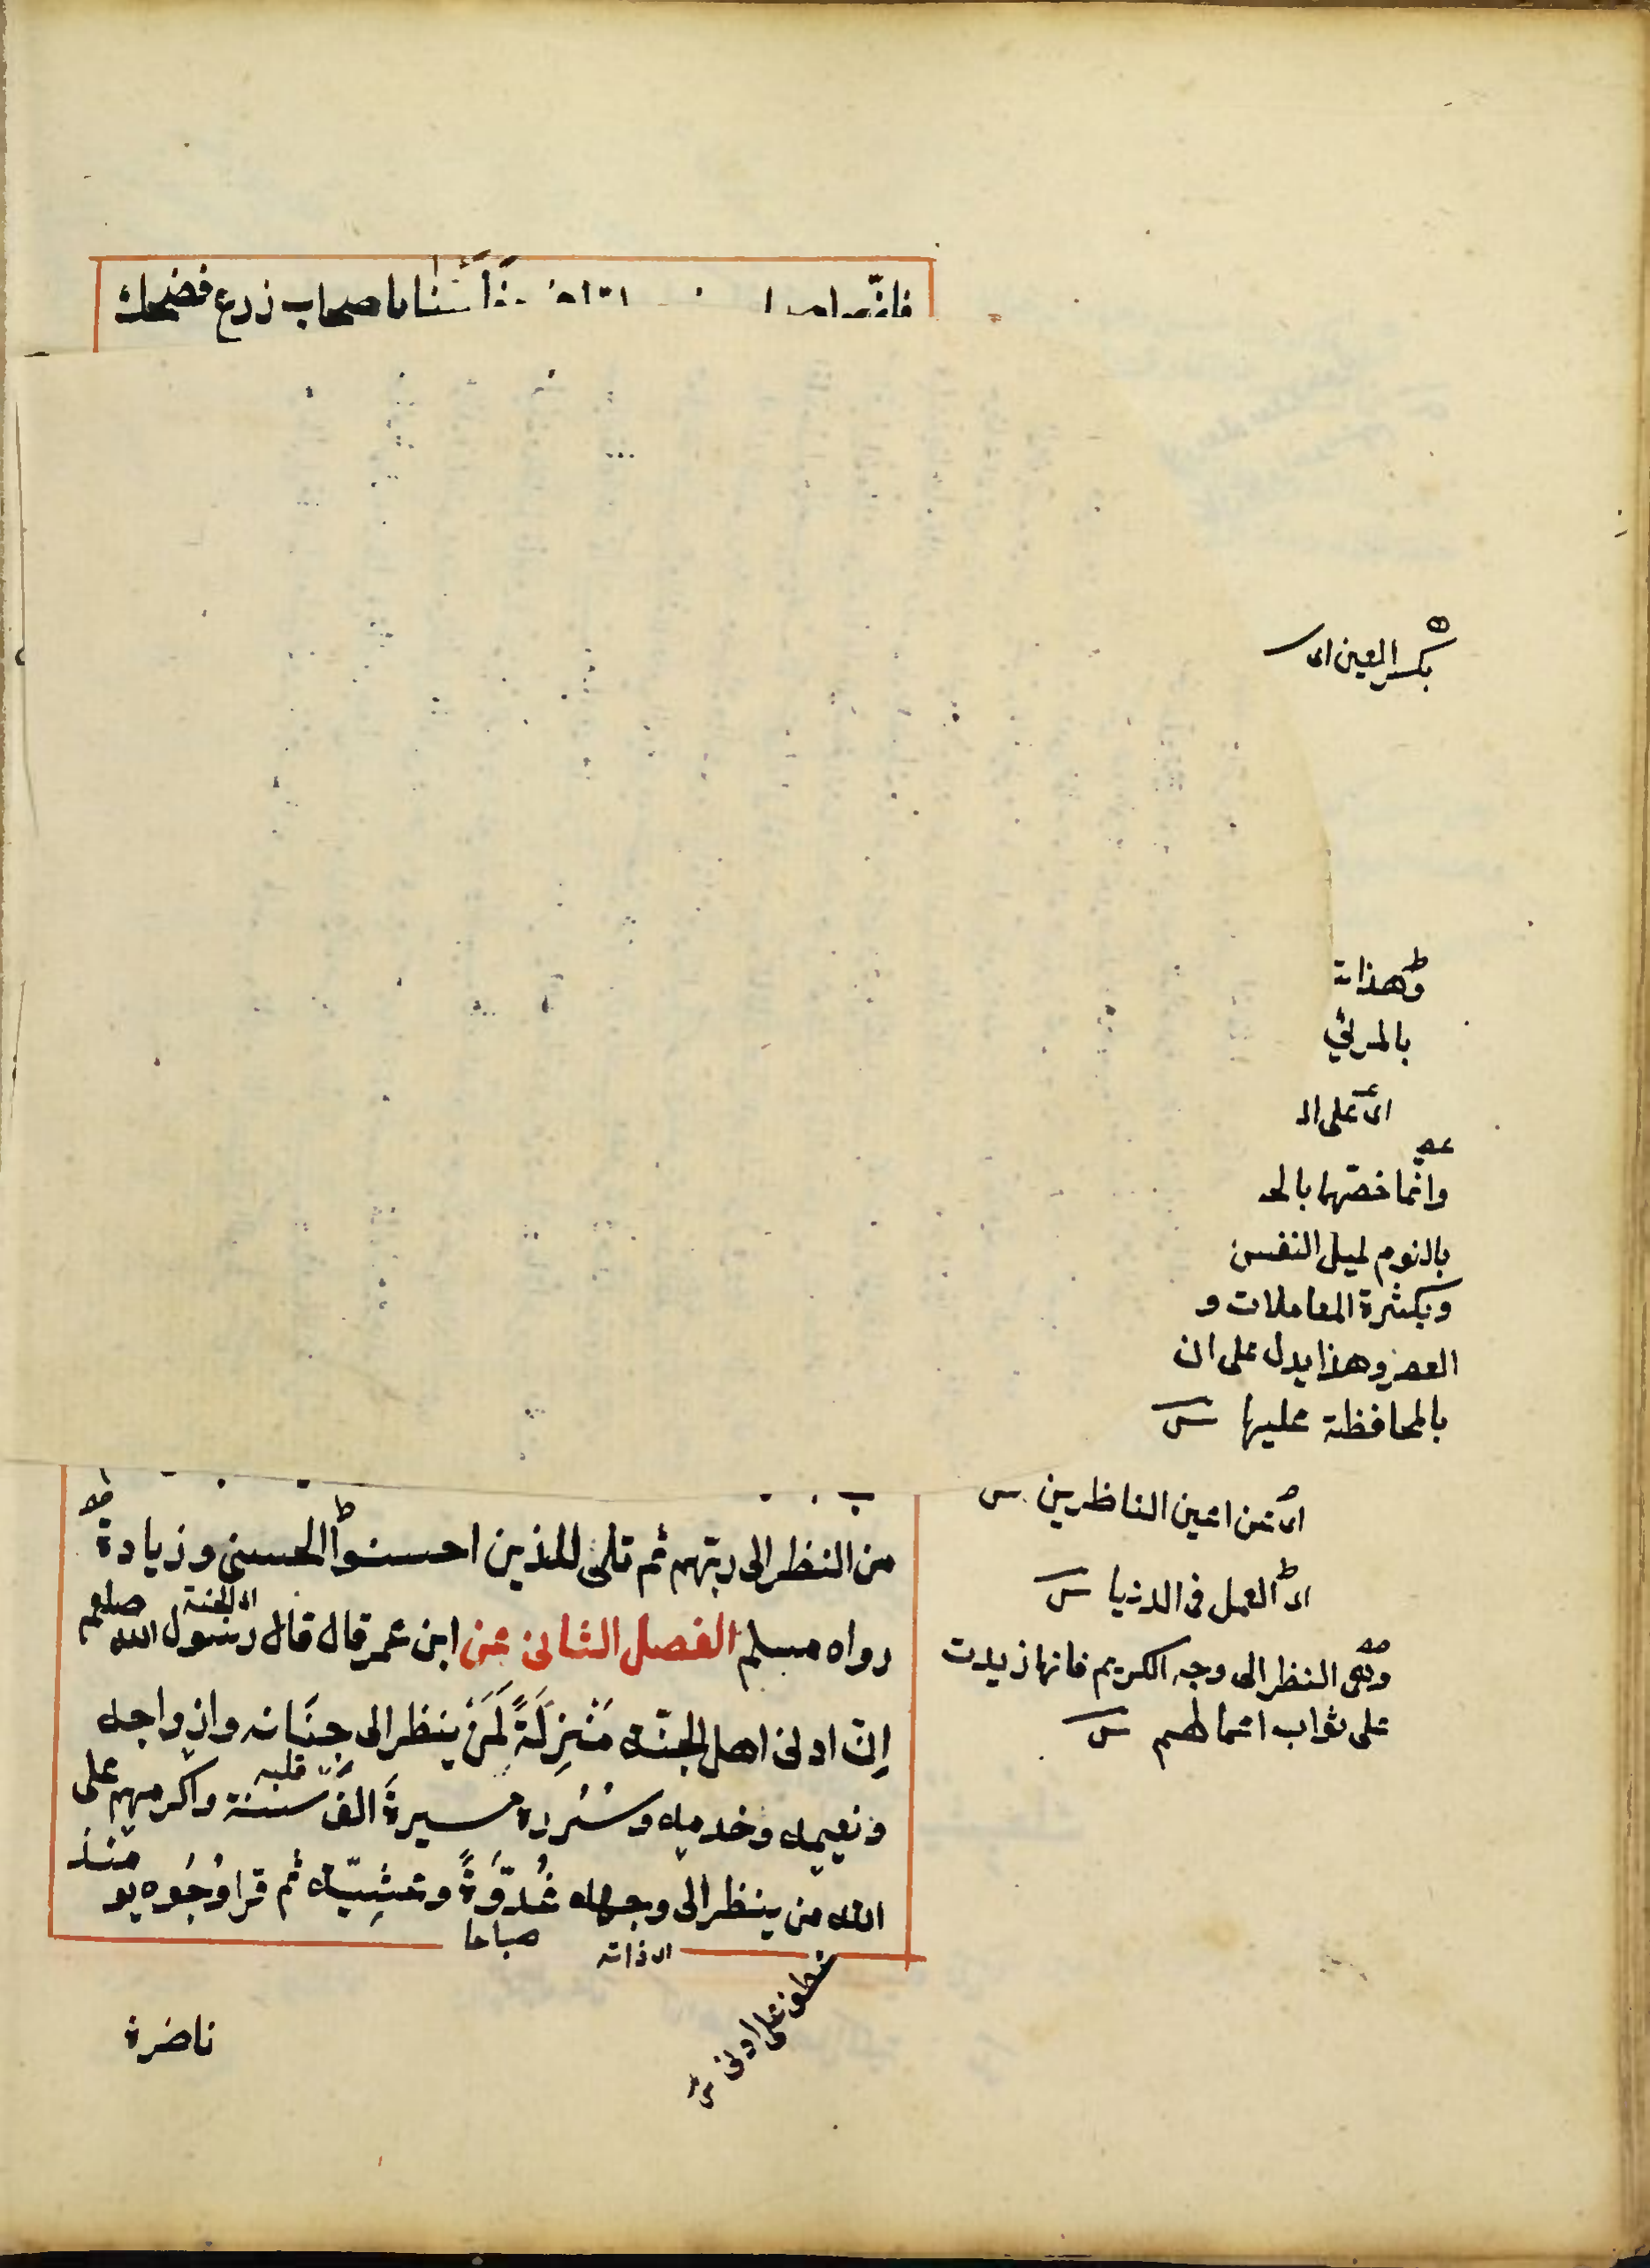 بأصحاب زرع فضحك
بكسر العين اى
وهذا ت
بالمرئي
اى على ال
وانما خصّهما بالحـ
بالنوم لميل النفس
وبكثرة المعاملات و
العصر وهذا يدل على ان
بالمحافظة عليها
اى عن اعين الناظرين
اى العمل فى الدنيا
وهى النظر الى وجه الكريم فانها زيدت
على ثواب اعمالهم
من النظر الى ربّهم ثم تلى للذين احسنوا الحسنى وزيادة
اى الجنة
رواه مسلم الفصل الثانى عن ابن عمر قال قال رسول الله صلعم
اِنّ ادنى اهل الجنّة مَنْزِلَةً لَمَنْ ينظر الى جِنَانه وازواجه
ونعيمه وخدمه وسُرُره مسيرةَ الفَ سنة واكرمهم على
الله من ينظر الى وجهه غُدْوَةً وعَشِيّة ثم قرا وُجُوه يومئذ
صباحا
اى ذاته
عطف على ادنى
ناضرة